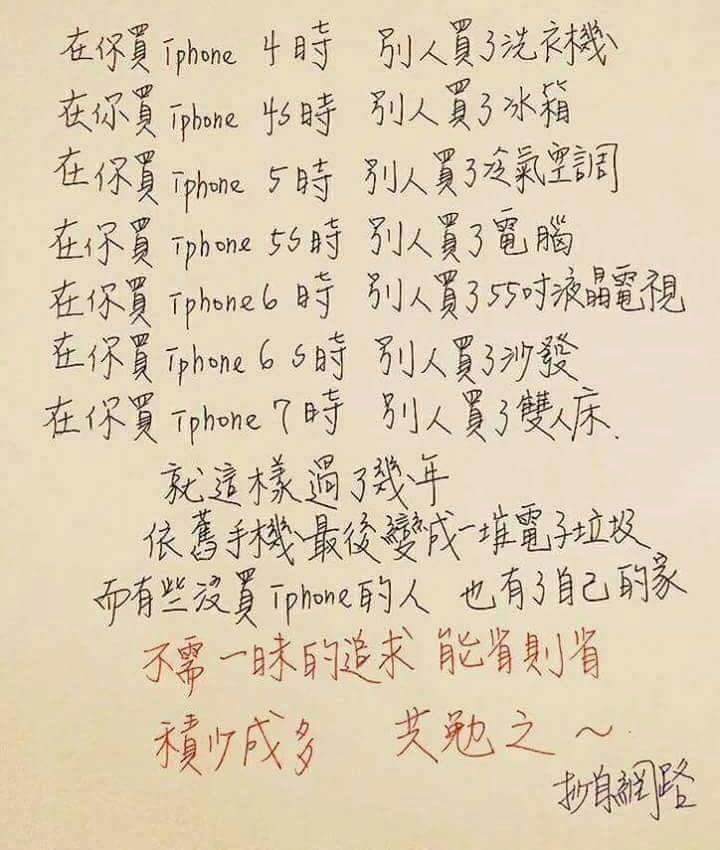 在你買iphone 4時 別人買了洗衣機
在你買iphone 4s時 別人買了冰箱
在你買iphone 5時 別人買了冷氣空調
在你買iphone 5s時 別人買了電腦
在你買iphone6時 別人買了55吋液晶電視
在你買iphone6 s時 別人買了沙發
在你買iphone 7時 別人買了雙人床.
就這樣過了幾年
依舊手機最後變成一堆電子垃圾
而有些沒買iphone的人 也有了自己的家
不需一昧的追求 能省則省
積少成多 共勉之~
抄自網路